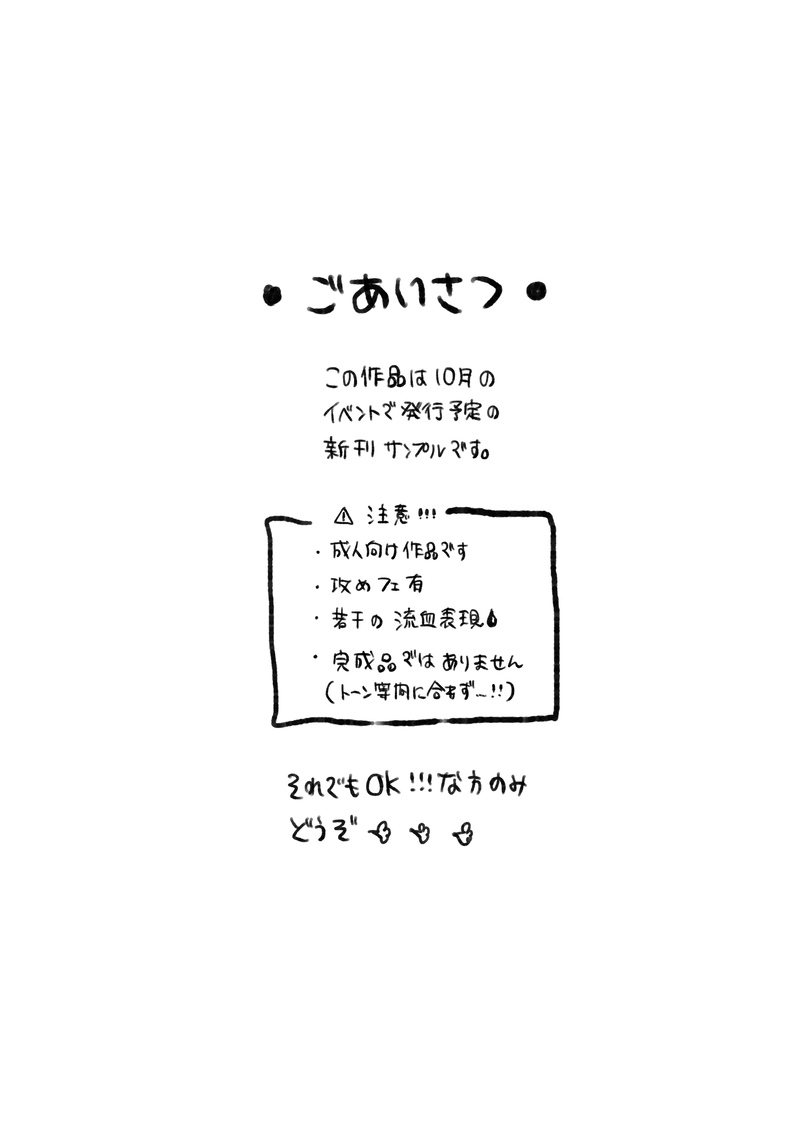 • ごあいさつ •
この作品は10月の
イベントで発行予定の
新刊サンプルです。
⚠ 注意!!!
・成人向け作品です
・攻めフェ有
・若干の流血表現
・完成品ではありません
(トーン等間に合わず…!!)
それでもOK!!!な方のみ
どうぞ